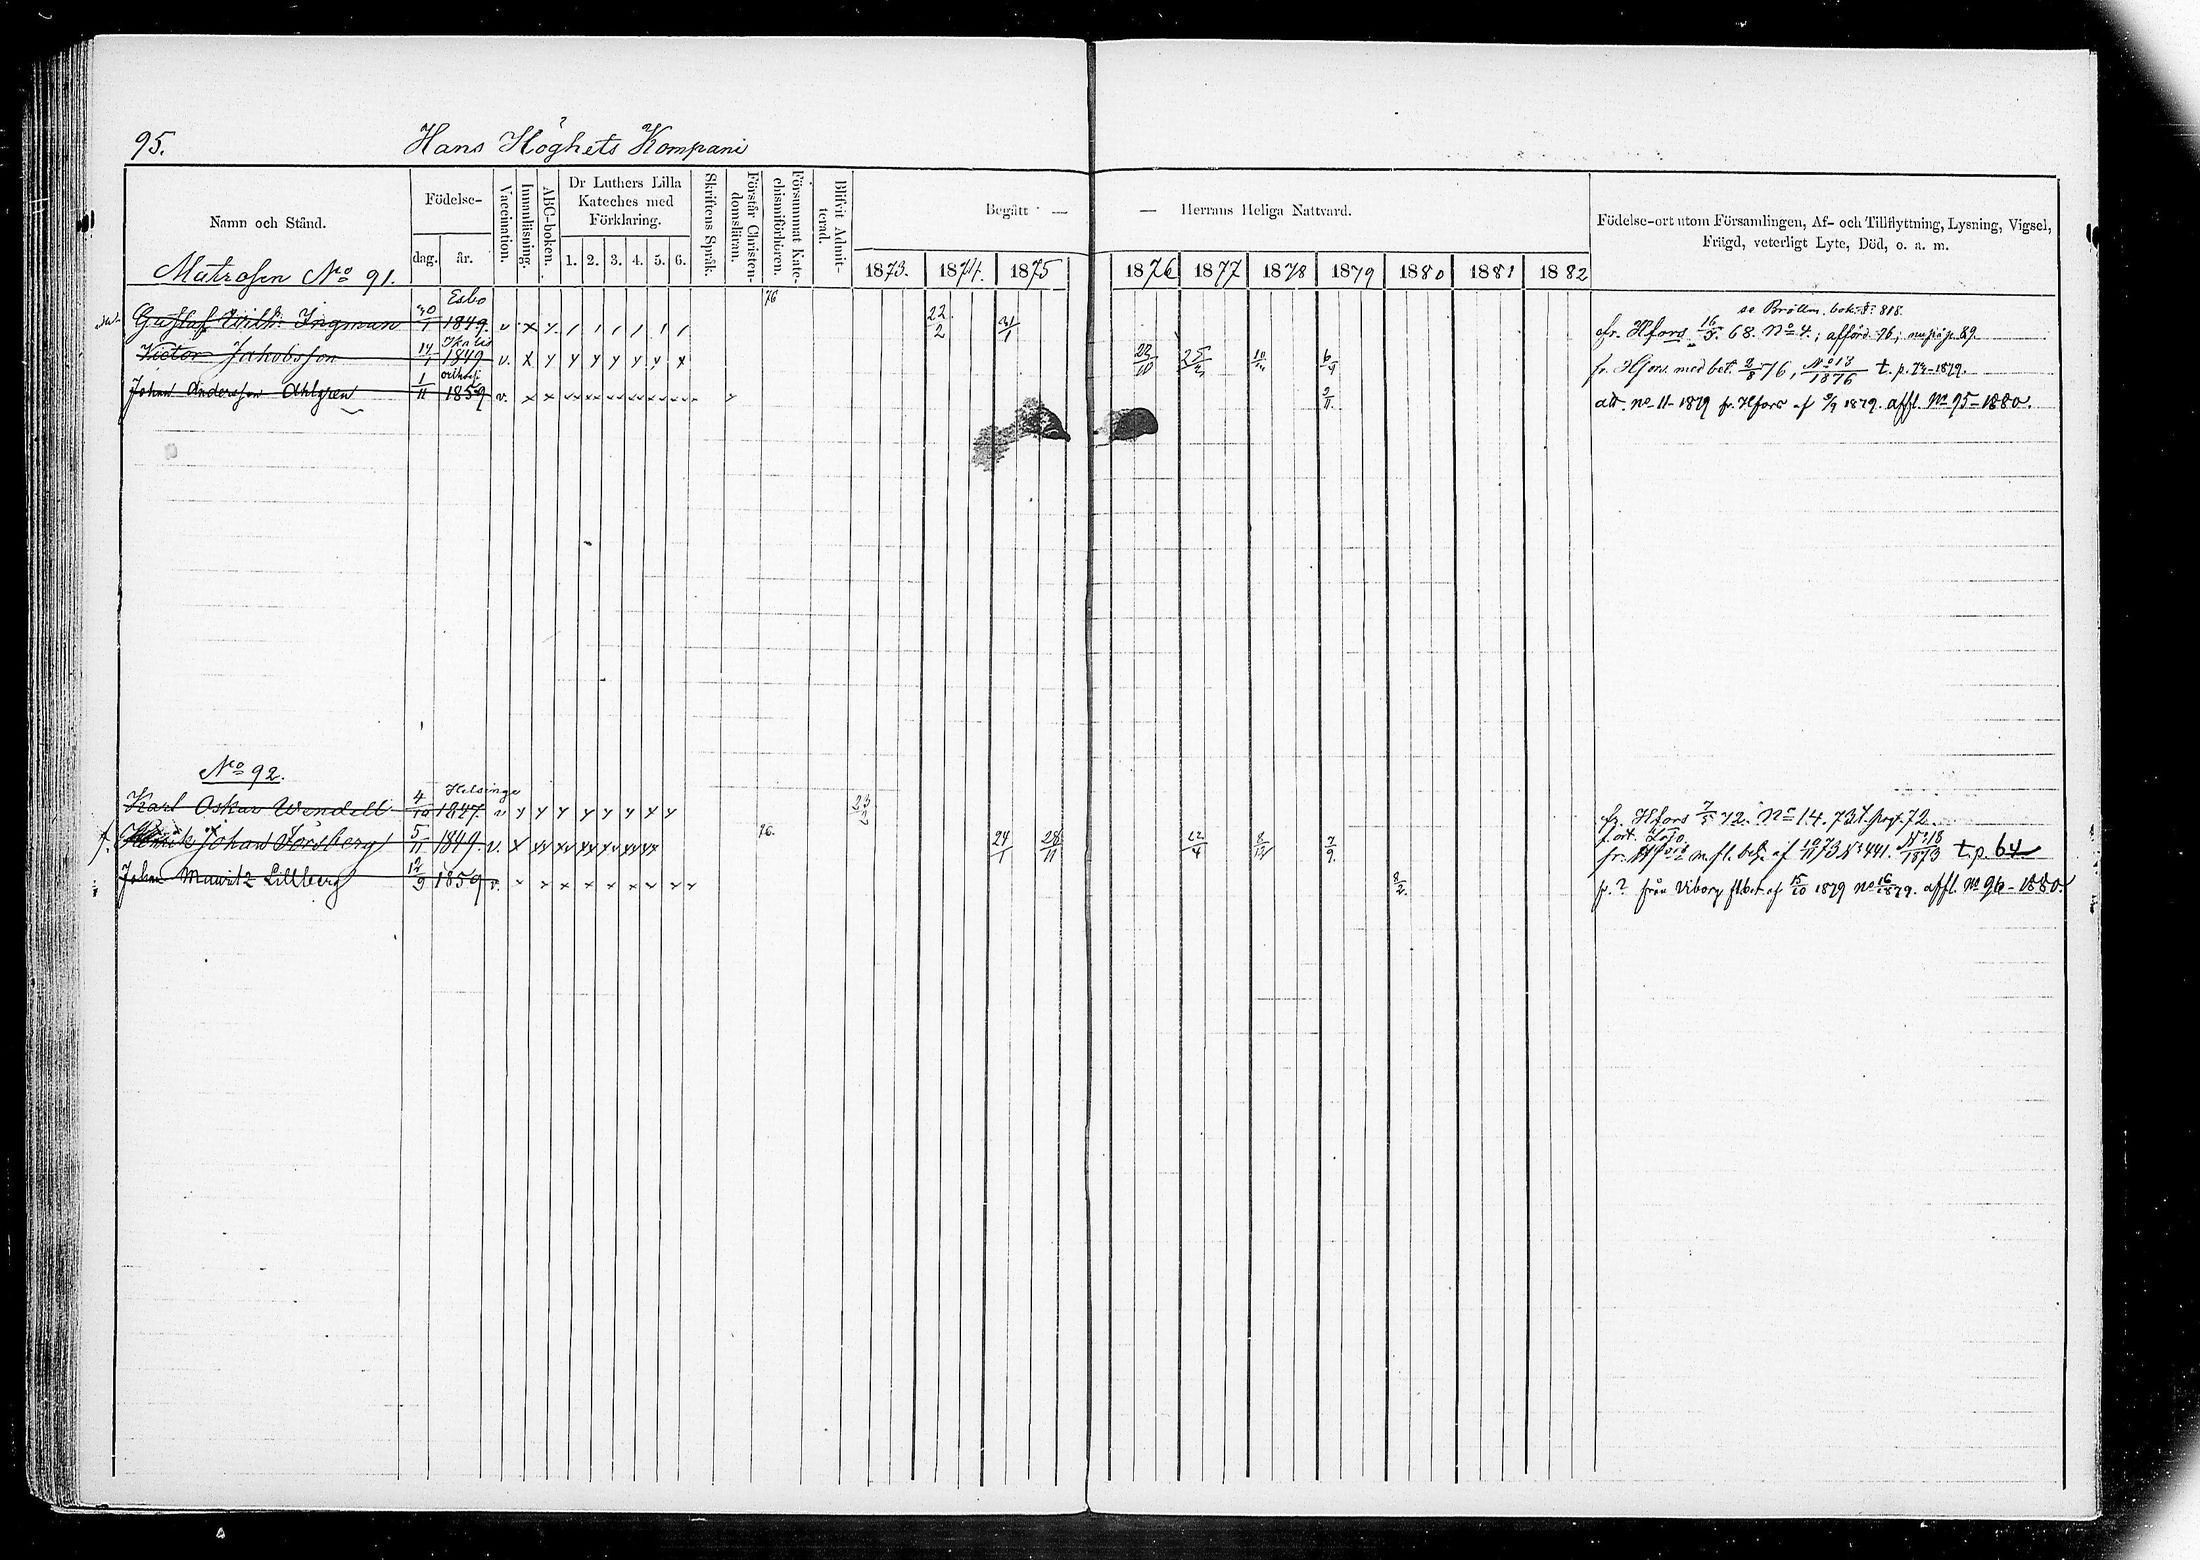 95. Hans Höghets Kompani
Namn och Stånd.
Födelse-
dag. år.
Vaccination.
Innanläsning.
ABC-boken.
Dr Luthers Lilla Kateches med Förklaring.
1. 2. 3. 4. 5. 6.
Skriftens Språk.
Förstår Christen-domsläran.
Försummat Kate-chismiförhören.
Blifvit Admit-terad.
Begått — — Herrans Heliga Nattvard.
1873. 1874. 1875 1876 1877 1878 1879 1880 1881 1882
Födelse-ort utom Församlingen, Af- och Tillflyttning, Lysning, Vigsel,
Frägd, veterligt Lyte, Död, o. a. m.
Matrosen No 91.
Esbo 76 se Bröllm. bok. 818.
Gustaf Wilh. Ingman 30/1 1849. v x x / / / / / / / 22/2 31/1 fr. Hfors 16/5 68. No 4.; afförd 76; p. 89.
Victor Jakobsson 14/1 1849 v. x y y y y y y x 22/10 25/2 10/ 6/4 fr. Hfors med bet. 2/8 76, No 13/1876 t. p. 74-1879.
Johan Andersson Ahlgren 1/11 1859 v. x x 2/11. att. no 11-1879 fr. Hfors af 9/9 1879. affl. No 95-1880.
No 92.
Helsinge
Karl Oskar Wendell 4/10 1847. v y y y y y y y y 23/2 fr. Hfors 7/5 72. No 14. 73 72.
f. Henrik Johan Forsberg 5/11 1849. v. x 76. 24/1 28/11 22/4 8/12 7/9. fr. Hfors m. fl. bet. af 10/11 73 No 441. No 18/1873 t. p. 64
Johan Mauritz Lillberg 12/9 1859 v. 8/2. fr. ? från Viborg flbet. af 15/10 1879 no 16/1879. affl. No 96-1880.